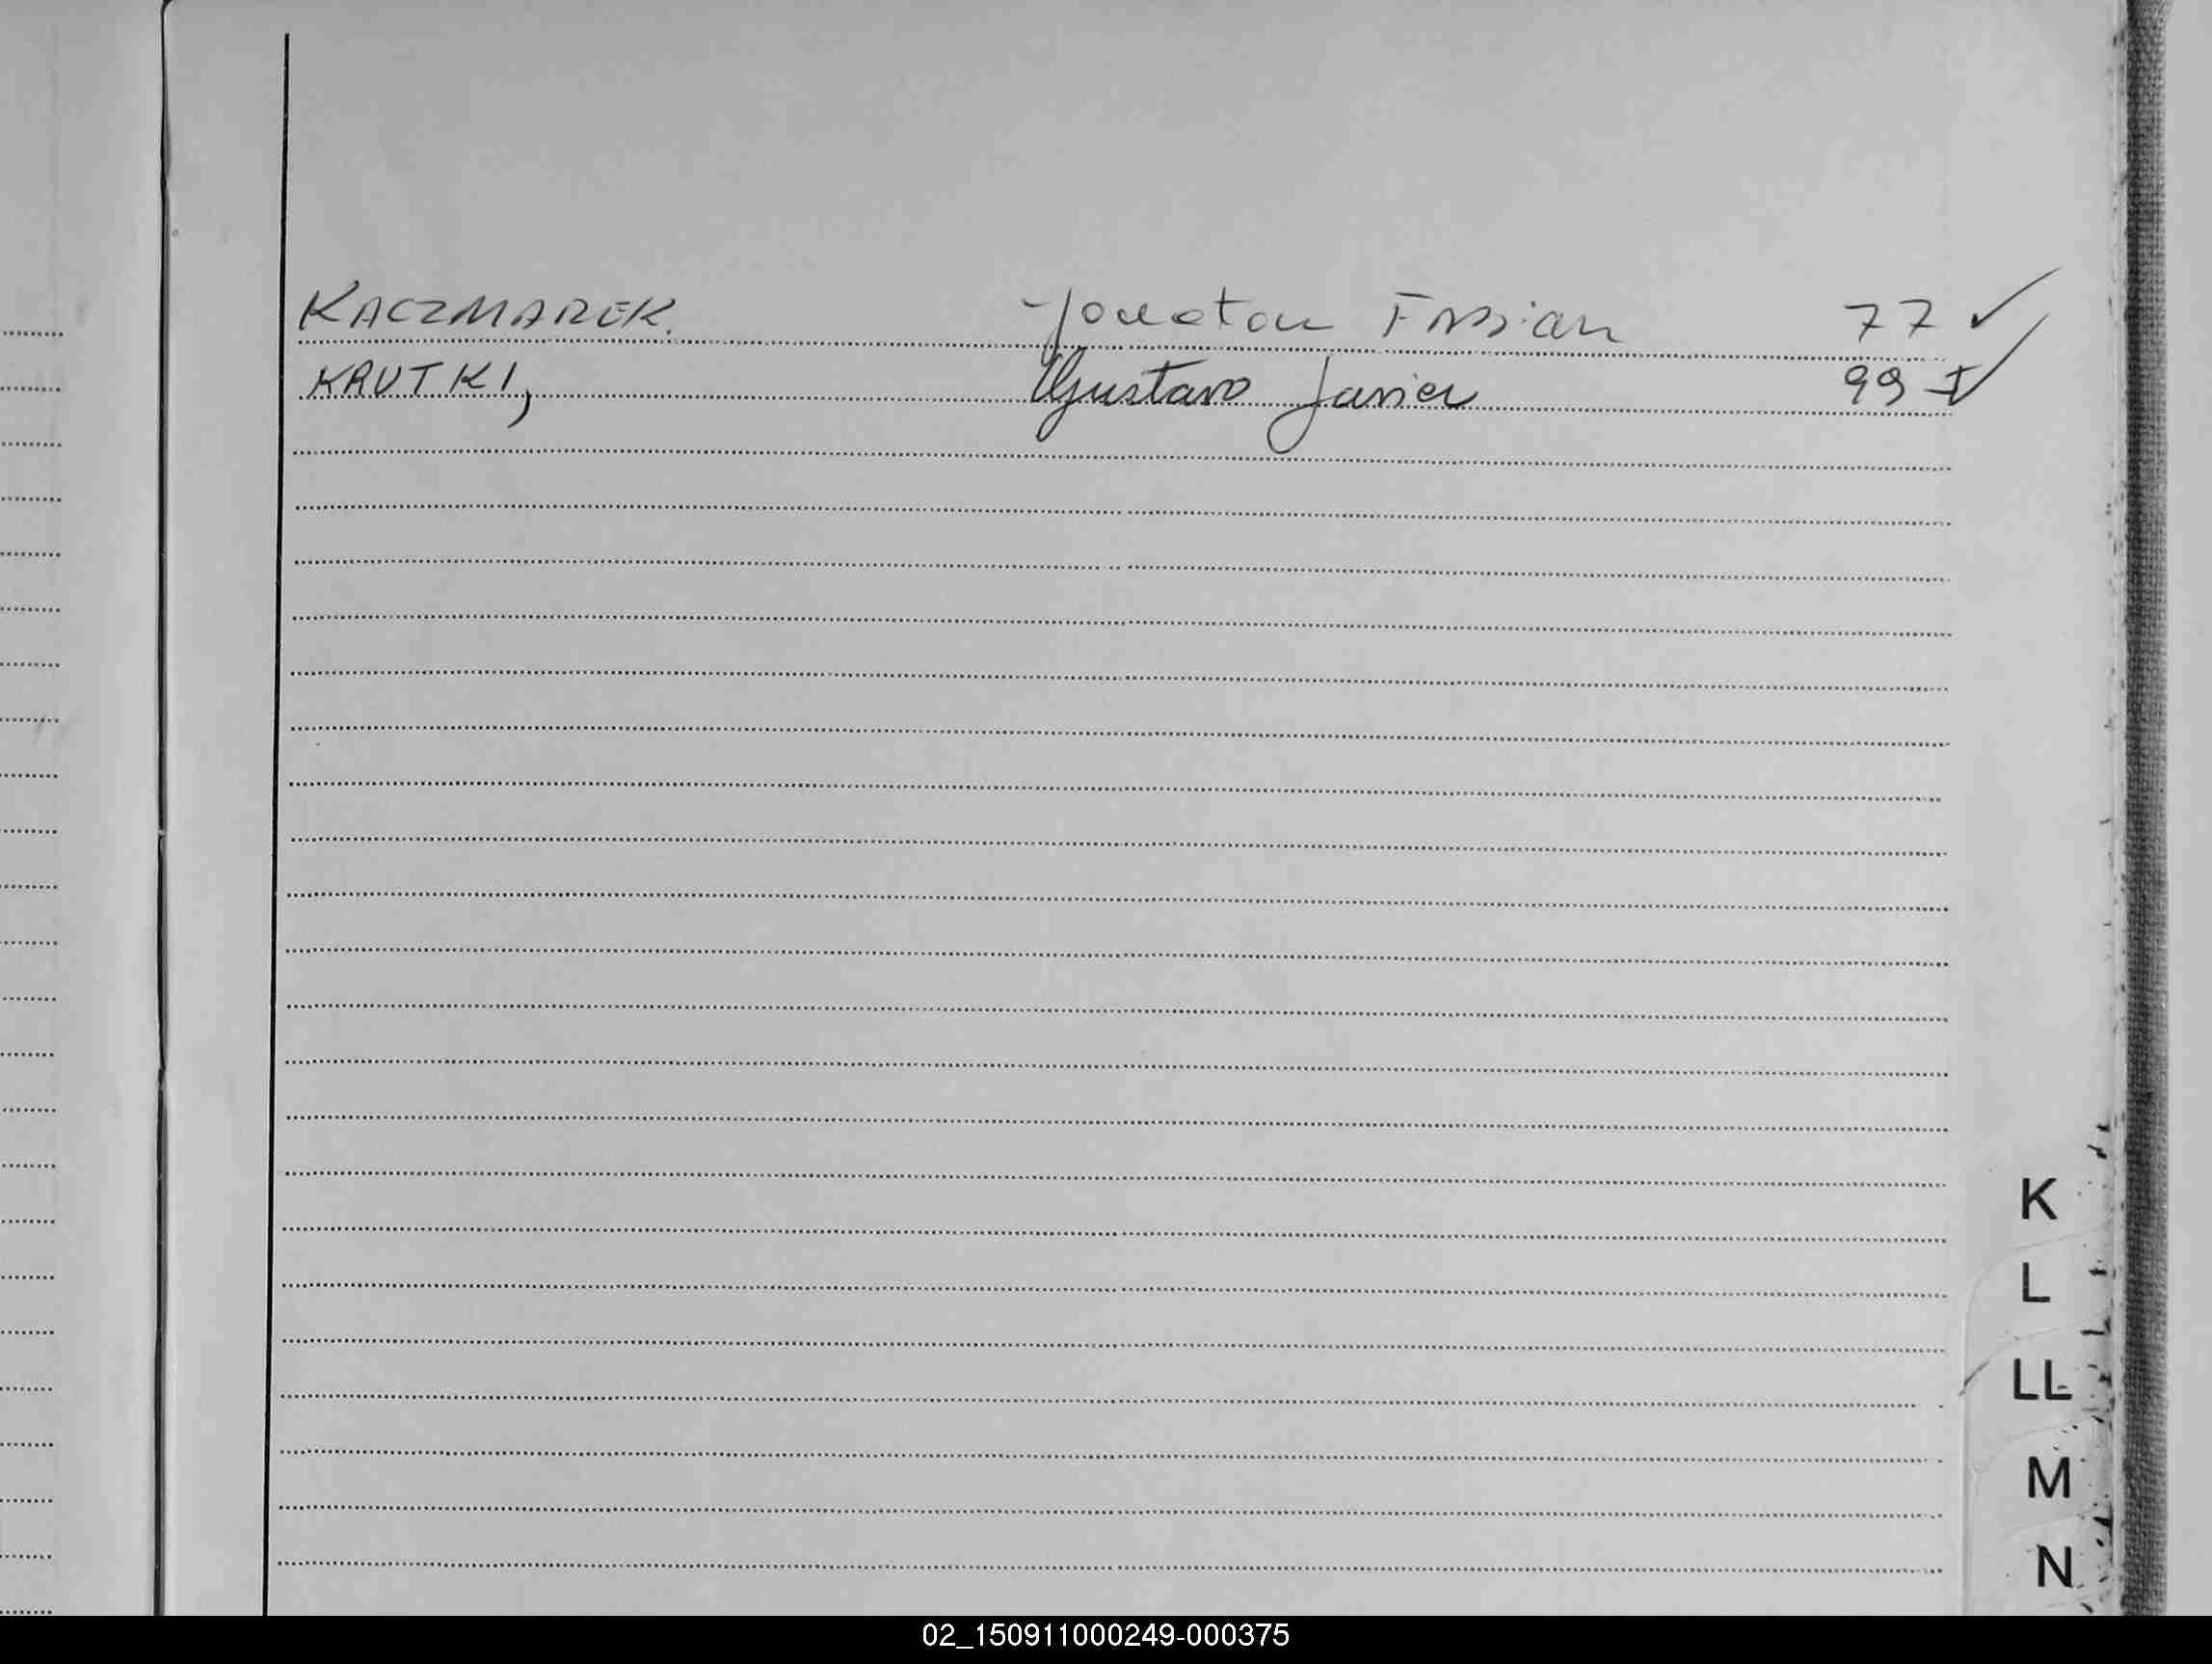 KACZMAREK. Jonatan Fabian 77 ✓
KRUTKI, Gustavo Javier 99 I ✓
K
L
LL
M
N
02_150911000249-000375